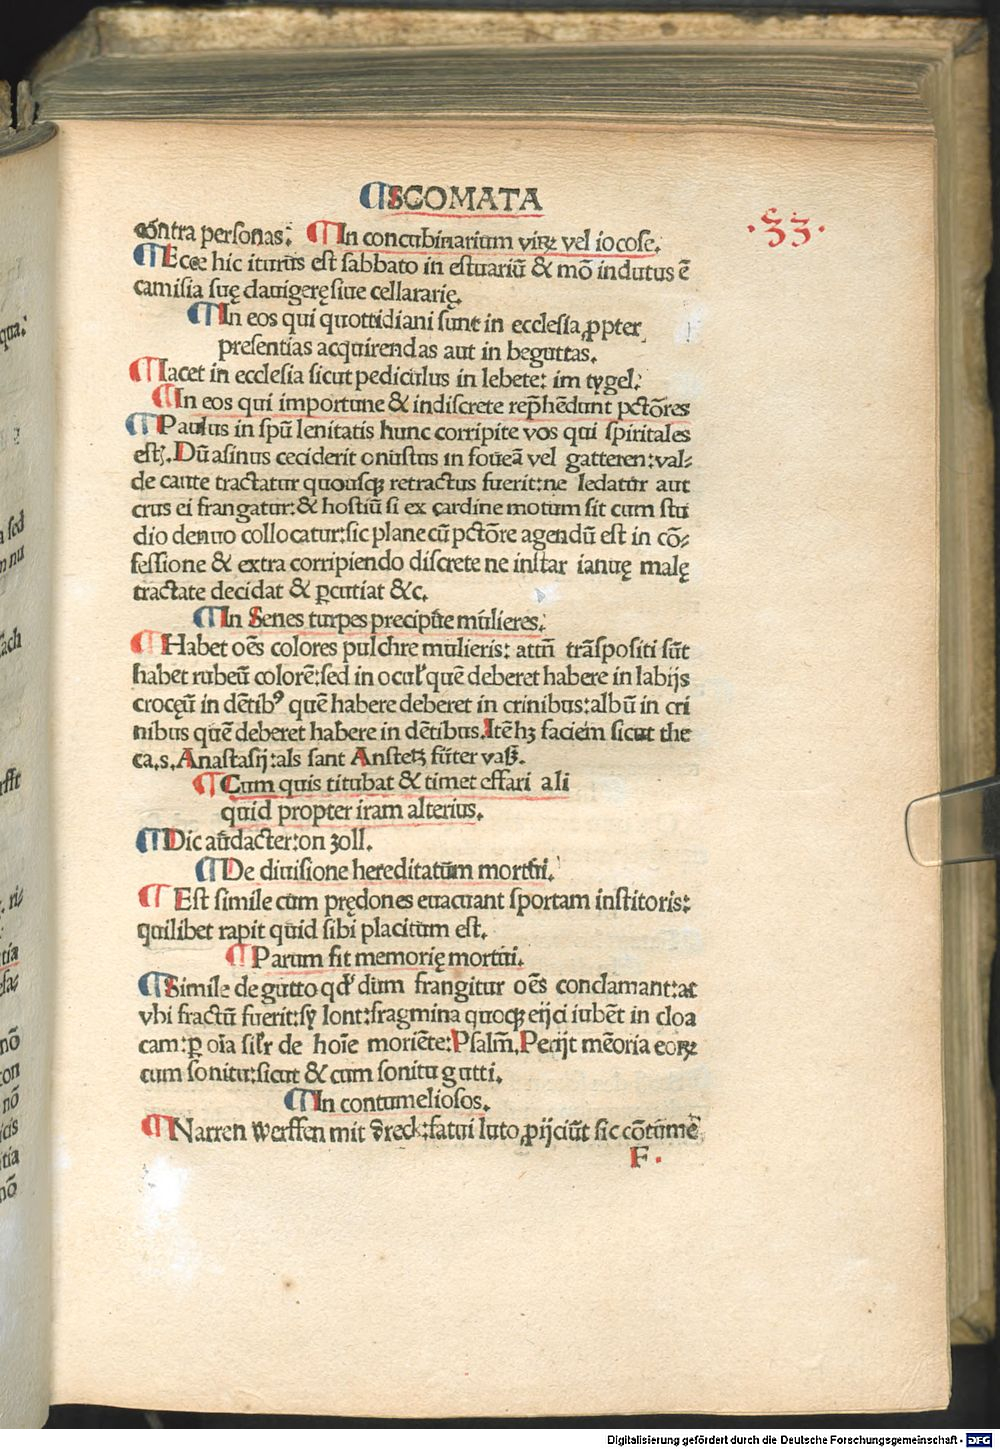 ¶SCOMATA
.33.
cōntra personas: ¶In concubinarium viꝝ vel iocose.
¶Ecce hic iturus est sabbato in estuariū & mō indutus ē
camisia suę clauigerę siue cellararię.
¶In eos qui quottidiani sunt in ecclesia ꝓpter
presentias acquirendas aut in beguttas.
¶Iacet in ecclesia sicut pediculus in lebete: im tygel.
¶In eos qui importune & indiscrete rep̄hēdunt pctōres
¶Paulus in spū lenitatis hunc corripite vos qui spiritales
estꝭ. Dū asinus ceciderit onustus in foueā vel gatteren: val⸗
de caute tractatur quousqꝫ retractus fuerit: ne ledatur aut
crus ei frangatur: & hostiū si ex cardine motum sit cum stu
dio denuo collocatur: sic plane cū pctōre agendū est in cō⸗
fessione & extra corripiendo discrete ne instar ianuę malę
tractate decidat & ꝑcutiat &c.
¶In Senes turpes precipue mulieres.
¶Habet oēs colores pulchre mulieris: attn̄ trāspositi sūt
habet rubeū colorē: sed in ocul̕ quē deberet habere in labijs
croceū in dētibꝰ quē habere deberet in crinibus: albū in cri
nibus quē deberet habere in dētibus. Itē hꝫ faciem sicut the
ca. s. Anastasij: als sant
¶Cum quis titubat & timet effari ali
quid propter iram alterius.
¶Dic audacter: on zoll.
¶De diuisione hereditatum mortui.
¶Est simile cum prędones euacuant sportam institoris:
quilibet rapit quid sibi placitum est.
¶Parum fit memorię mortui.
¶Simile de gutto qd̕ dum frangitur oēs conclamant: at
vbi fractū fuerit: sy lont: fragmina quoqꝫ eijci iubēt in cloa
cam: ꝑ oīa sil̕r de hoīe moriēte: Psalm̄. Perijt mēoria eoꝝ
cum sonitu: sicut & cum sonitu gutti.
¶In contumeliosos.
¶Narren werffen mit dreck: fatui luto ꝓijciūt sic cōtume
F.
Digitalisierung gefördert durch die Deutsche Forschungsgemeinschaft - DFG